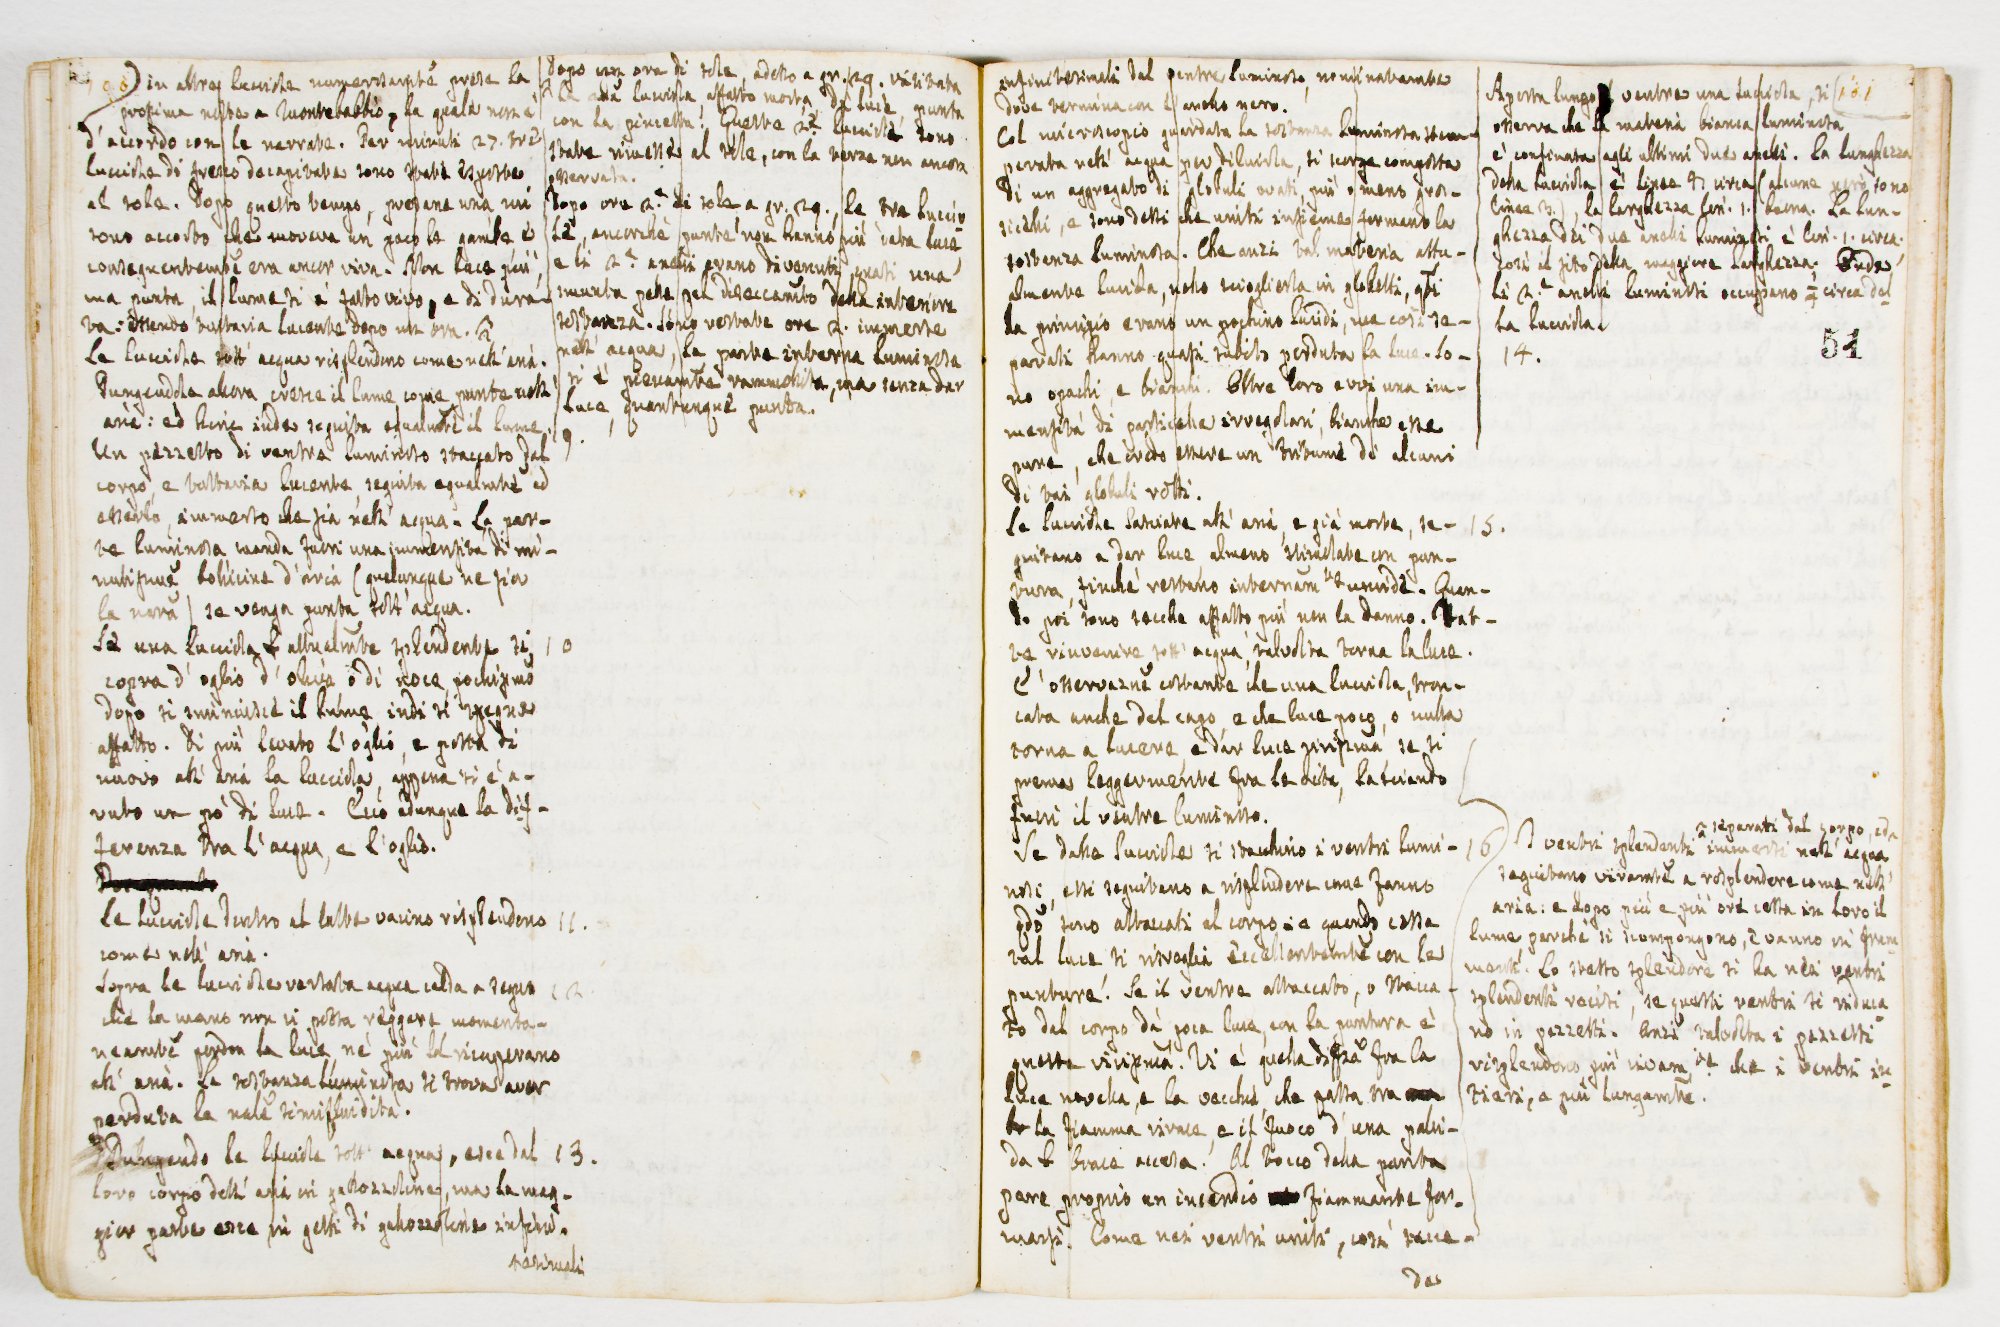 in altre lucciole numerosamte prese la
prossima notte a Montebabbio, la quale non è
d'accordo con le narrate. Per minuti 27. tre
lucciole di fresco decapitate sono state esposte
al sole. Dopo questo tempo, presane una mi
sono accorto che moveva un poco le gambe e
conseguentemte era ancor viva. Non luce più,
ma punta, il lume si è fatto vivo, e di dura-
ta: essendo tuttavia lucente dopo un ora.
Le lucciole sott' acqua risplendono come nell' aria.
Pungendole allora cresce il lume come punte nell'
aria: ed hinc inde seguita egualmte il lume.
Un pezzetto di ventre luminoso staccato dal
corpo, e tuttavia lucente, seguita egualmte ad
esserlo, immerso che sia nell' acqua. La par-
te luminosa manda fuori una immensità di mi-
nutissime bollicine d'aria (qualunque ne sia
la natura) se venga punta sott' acqua.
Se una lucciola è attualmte splendente si 10
copra d'oglio d'oliva o di noce, pochissimo
dopo si sminuisce il lume, indi si spegne
affatto. Di più levato l'oglio, e posta di
nuovo all' aria la lucciola, appena si è a-
vuto un pò di luce. Ecco adunque la dif-
ferenza tra l'acqua, e l'oglio.
Le lucciole dentro al latte vacino risplendono 11.
come nell' aria.
Sopra le lucciole versata acqua calda a segno 12
che la mano non vi possa reggere momenta-
neamte perdon la luce, nè più la ricuperano
all' aria. La sostanza luminosa si trova aver
perduta la natle semifluidità.
Pungendo le lucciole sott' acqua, esce dal 13.
loro corpo dell' aria in gallozzoline, ma la mag-
gior parte esce in getti di gallozzoline infini-
tesimali
dopo un ora di sole, adesso a gr. 29. visitata
la 2da lucciola affatto morta, dà luce, punta
con la pincetta. Queste 2. lucciole sono
state rimesse al sole, con la terza non ancora
osservata.
Dopo ore 2. di sole a gr. 29., le tre luccio-
le, ancorchè punte non hanno più data luce,
e li 2. anelli erano divenuti quasi una
smunta pelle pel diseccamto della interiore
sostanza. Sono restate ore 2. immerse
nell' acqua, la parte interna luminosa
si è pienamte rammollita, ma senza dar
luce, quantunque punta.
9.
infinitesimali dal ventre luminoso, nominatamente
dove termina con l'anello nero.
Col microscopio guardata la sostanza luminosa stem-
perata nell' acqua per diluirla, si scorge composta
di un aggregato di globuli ovati, più o meno gros-
sicelli, e sono dessi che uniti insieme formano la
sostanza luminosa. Che anzi tal materia attu-
almente lucida, nello sciogliersi in globetti, qti
da principio erano un pochino lucidi, ma così se-
parati hanno quasi subito perduta la luce. So-
no opachi, e bianchi. Oltre loro evvi una im-
mensità di particelle irregolari, bianche esse
pure, che credo essere un tritume di alcuni
di tai globuli rotti.
Le lucciole lasciate all' aria, e già morte, se- 15.
guitano a dar luce, almeno stimolate con pun-
tura, finchè restano internamte umide. Quan-
do poi sono secche affatto più non la danno. Fat-
te rinvenire sott' acqua, talvolta torna la luce.
E' osservazne costante che una lucciola, tron-
cata anche del capo, e che luce poco, o nulla
torna a lucere e dar luce vivissima se si
prema leggermente fra le dita, lasciando
fuori il ventre luminoso.
Se dalle lucciole si stacchino i ventri lumi- 16
nosi, essi seguitano a risplendere come fanno
qdo sono attaccati al corpo: e quando cessa
tal luce si risveglia eccellentemte con le
punture. Se il ventre attaccato, o stacca-
to dal corpo dà poca luce, con la puntura è
questa vivissima. Vi è quella diffza fra la
luce novella, e la vecchia, che passa tra
la fiamma vivace, e il fuoco d'una palli-
da brace accesa. Al tocco della punta
pare proprio un incendio fiammante for-
marsi. Come nei ventri uniti, così succe-
de
Aperta lungo il ventre una lucciola, si 181
osserva che la materia bianca luminosa
è confinata agli ultimi due anelli. La lunghezza
della lucciola è linee 4 circa (alcune però sono
linee 3.), la larghezza lin. 1. buona. La lun-
ghezza dei due anelli luminosi è lin. 1. circa.
così il sito della maggiore larghezza. Onde
li 2. anelli luminosi occupano circa del-
la lucciola.
14.
51
I ventri splendenti separati dal corpo, ed
immersi nell' acqua
seguitano vivamte a risplendere come nell'
aria: e dopo più e più ore cessa in loro il
lume perchè si scompongono, e vanno in fram-
menti. Lo stesso splendore si ha nei ventri
splendenti recisi, se questi ventri si riduca-
no in pezzetti. Anzi talvolta i pezzetti
risplendono più vivamte che i ventri in-
tieri, e più lungamte.